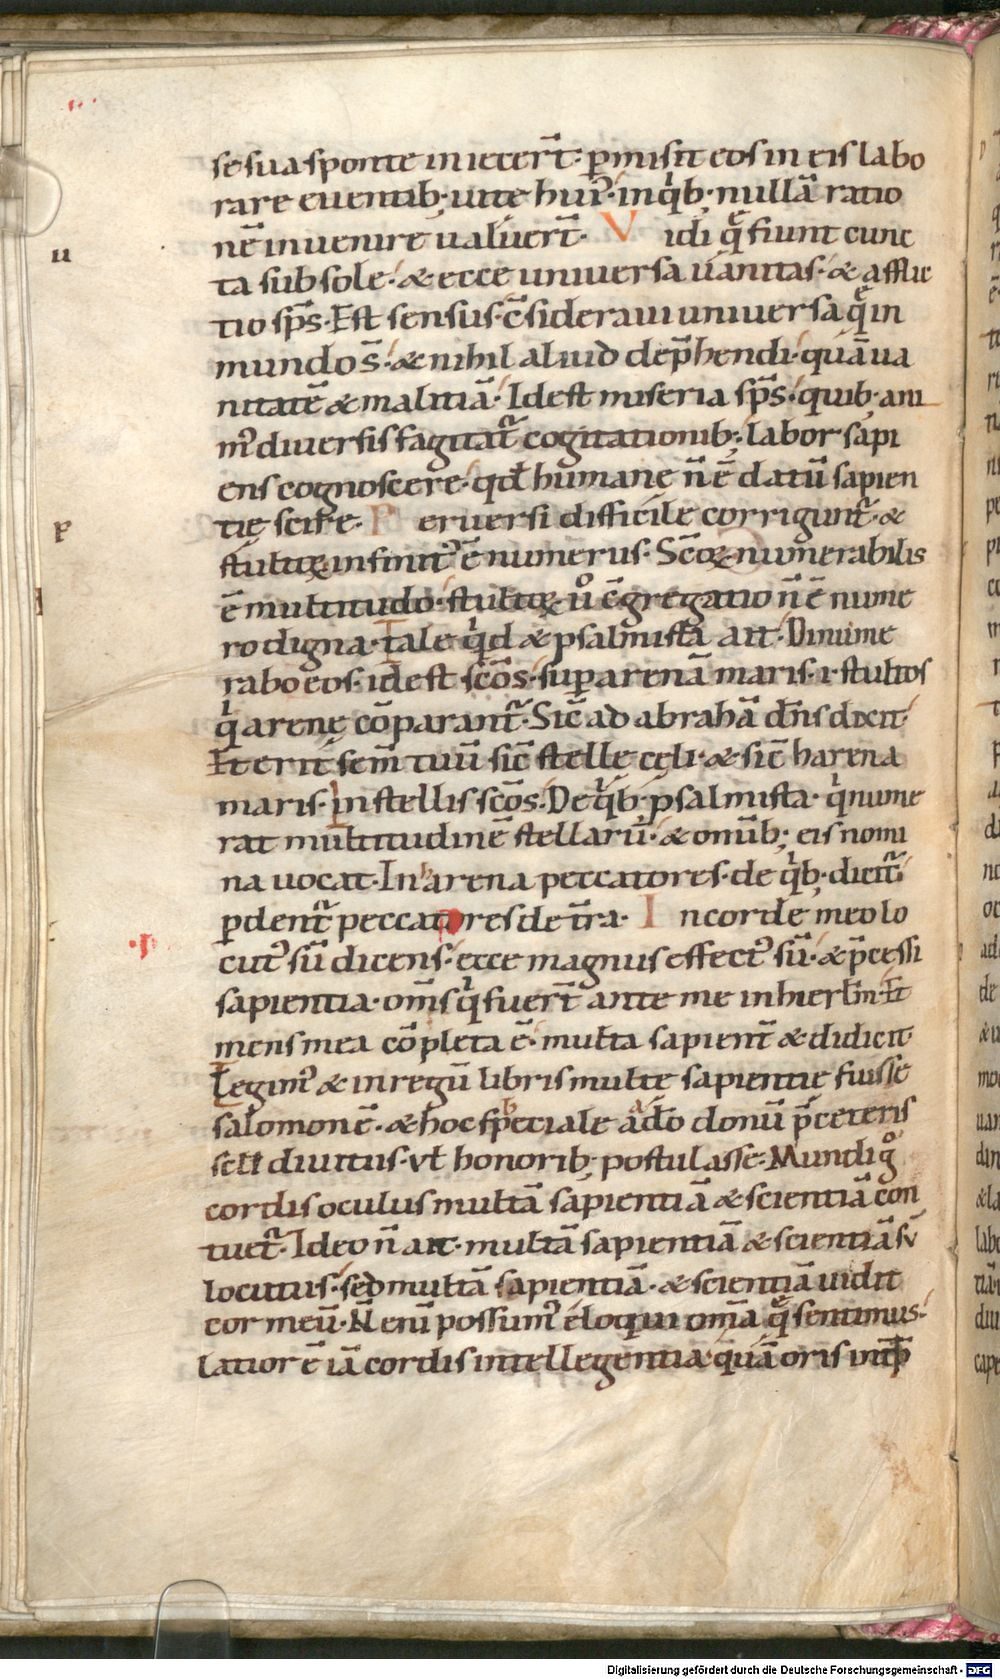 se sua sponte iniecer̄t· p̱misit eos in eis labo
rare euentib; uite hui᾽· in qͥb; nullā ratio
nē inuenire ualuer̄t· Vidi q̄ fiunt cunc
ta sub sole· & ecce uniuersa uanitas· & afflic
tio sp̄s· Est sensus· c̄sideraui uniuersa q̄ in
mundo s̄· & nihil aliud dep̄hendi· quā ua
nitatē & malitiā· Id est miseria sp̄s· quib; ani
m᾽ diuersis fagitat᷑ cogitationib; labor sapi
ens cognoscere· qđ humanę n̄ ē datū sapien
tię scire· Peruersi difficile corrigunt᷑· &
stultoꝝ infinit᾽ ē numerus· Sc̄oꝝ numerabilis
ē multitudo· stultoꝝ uͦ c̄gregatio n̄ ē nume
ro digna· Tale qͥd & psalmista ait· Dinume
rabo eos· id est scōs· sup̱ arenā maris· i· stultos
qͥ arenę cōparant᷑· Sic̄ ad abrahā dn̄s dixit·
Et erit sem̄ tuū sic̄ stelle cęli· & sic̄ harena
maris· In stellis scōs· De qͥb; psalmista· qͥ nume
rat multitudinē stellarū· & omīb; eis nomi
na uocat· In harena peccatores· de qͥb; dicit᷑
p̱dent᷑ peccatores de tr̄a· In corde meo lo
cut᾽ sū dicens· ecce magnus effect᾽ sū· & p̄cessi
sapientia· om̄s qͥ fuer̄t ante me in hierlm̄· Et
mens mea cōpleta ē· multa sapient̄ & didicit·
Legim᾽ & in regū libris multe sapientię fuisse
salomonē· & hoc speciale a do donū p̄ ceteris
sclī diuitus· vƚ honorib; postulasse· Mundi gͦ
cordis oculus multā sapientiā & scientiā con
tuet᷑· Ideo n̄ ait· multā sapientiā & scientiā sū
locutus· sed multā sapientiā· & scientiā uidit
cor meū· N̄ enī possum᾽ eloqui om̄a q̄ sentimus·
latior ē iā cordis intellegentia· quā oris int̄p̱
u
P
·I·
Digitalisierung gefördert durch die Deutsche Forschungsgemeinschaft - DFG